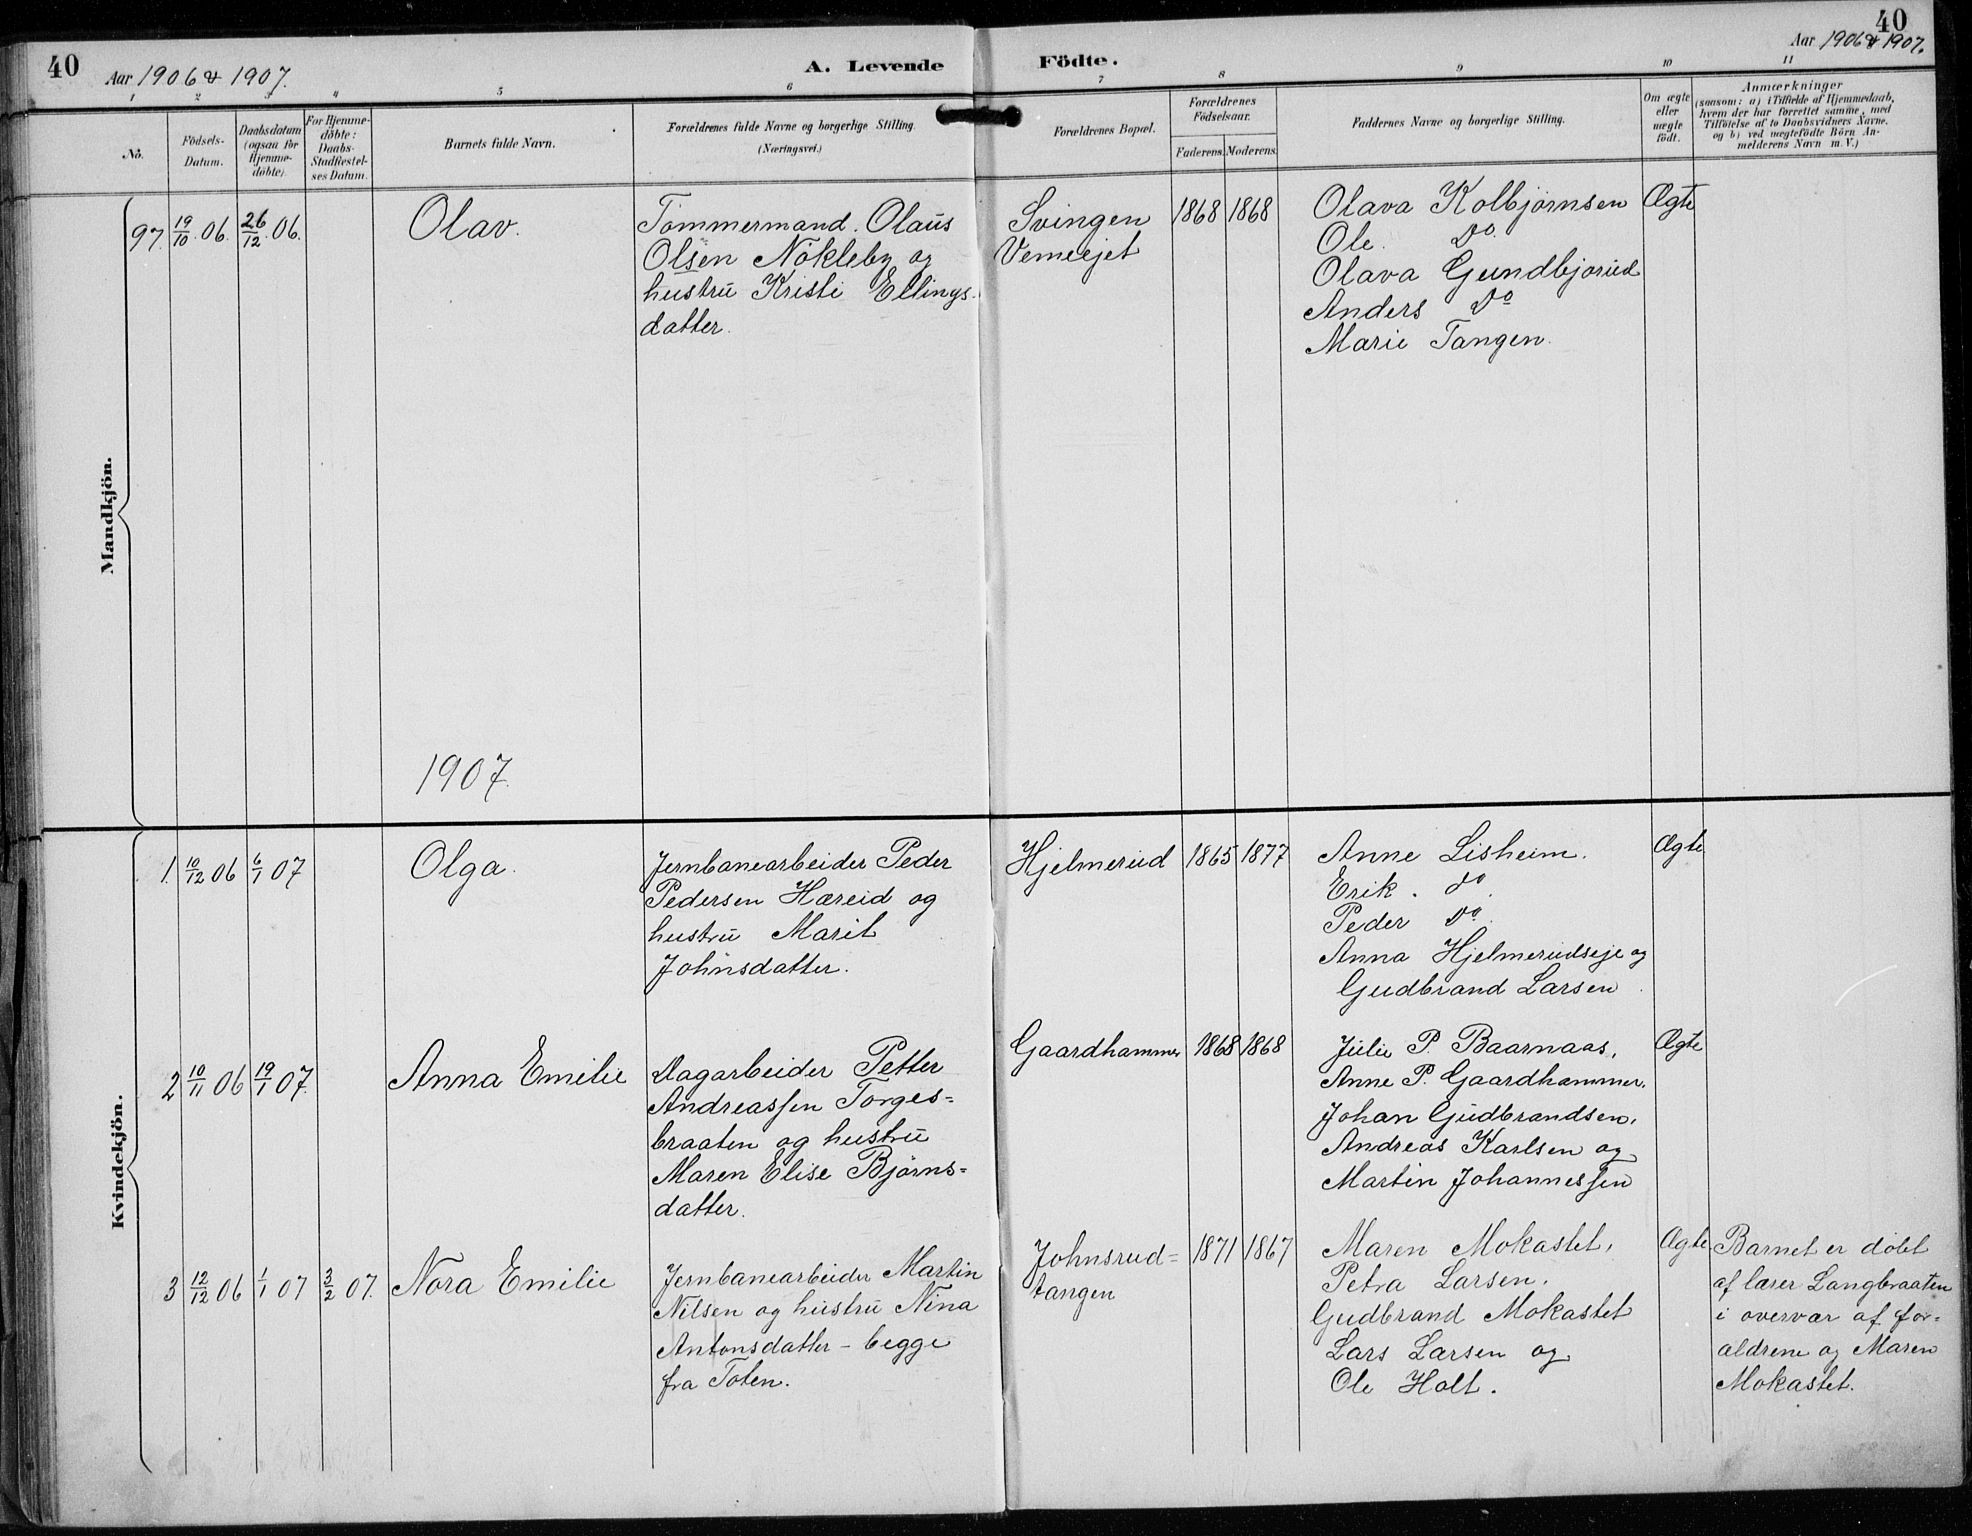 40
Aar 1906 & 1907.
A. Levende Födte.
40
Aar 1906 & 1907.
1 2 3 4 5 6 7 8 9 10 11
No.
Födsels-
Datum.
Daabsdatum
(ogsaa for
Hjemme-
døbte).
For Hjemme-
døbte:
Daabs-
Stadfæstel-
ses Datum.
Barnets fulde Navn.
Forældrenes fulde Navne og borgerlige Stilling.
(Næringsvei.)
Forældrenes Bopæl.
Forældrenes
Födselsaar.
Faderens. Moderens.
Faddernes Navne og borgerlige Stilling.
Om ægte
eller
uægte
födt.
Anmærkninger
(saasom: a) i Tilfælde af Hjemmedaab,
hvem der har forrettet samme, med
Tilföielse af to Daabsvidners Navne,
og b) ved uægtefödte Börn An-
melderens Navn m. V.)
Mandkjön.
97. 19/10 06. 26/12 06.
Olav.
Tømmermand Olaus
Olsen Nökleby og
hustru Kristi Ellings-
datter.
Svingen
1868 1868
Olava Kolbjørnsen
Ole. Do.
Olava Gundbjørud
Anders Do
Marie Tangen.
Ægte
1907.
Kvindekjön.
1. 10/12 06 6/1 07
Olga.
Jernbanearbeider Peder
Pedersen Hæreid og
hustru Marit
Johnsdatter.
Hjelmerud
1865 1877
Anne Lisheim.
Erik. do.
Peder Do.
Anna Hjelmerudseje og
Gudbrand Larsen
Ægte
2 10/11 06 19/1 07.
Anna Emilie
Dagarbeider Petter
Andreassen Torges-
braaten og hustru
Maren Elise Bjørns-
datter.
Gaardhammer
1868 1868
Julie P. Baarnaas,
Anne P. Gaardhammer,
Johan Gudbrandsen,
Andreas Karlsen og
Martin Johannessen
Ægte
3 12/12 06 1/1 07 3/2 07.
Nora Emilie
Jernbanearbeider Martin
Nilsen og hustru Nina
Antonsdatter - begge
fra Toten.
Johnsrud-
tangen
1871 1867
Maren Mokastet,
Petra Larsen.
Gudbrand Mokastet
Lars Larsen og
Ole Holt.
Ægte
Barnet er döbt
af lærer Langbraaten
i overvær af for-
ældrene og Maren
Mokastet.